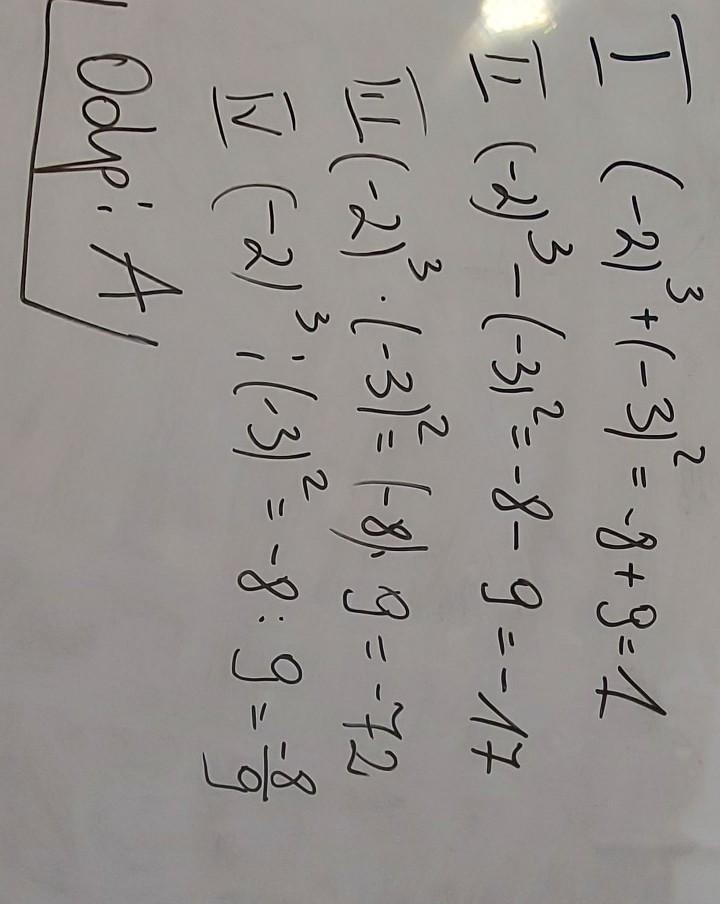 I (-2)³+(-3)²=-8+9=1
II (-2)³-(-3)²=-8-9=-17
III (-2)³·(-3)²=(-8)·9=-72
IV (-2)³:(-3)²=-8:9=\frac{-8}{9}
Odp: A